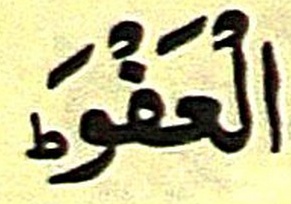 الْعَفْوَ ط